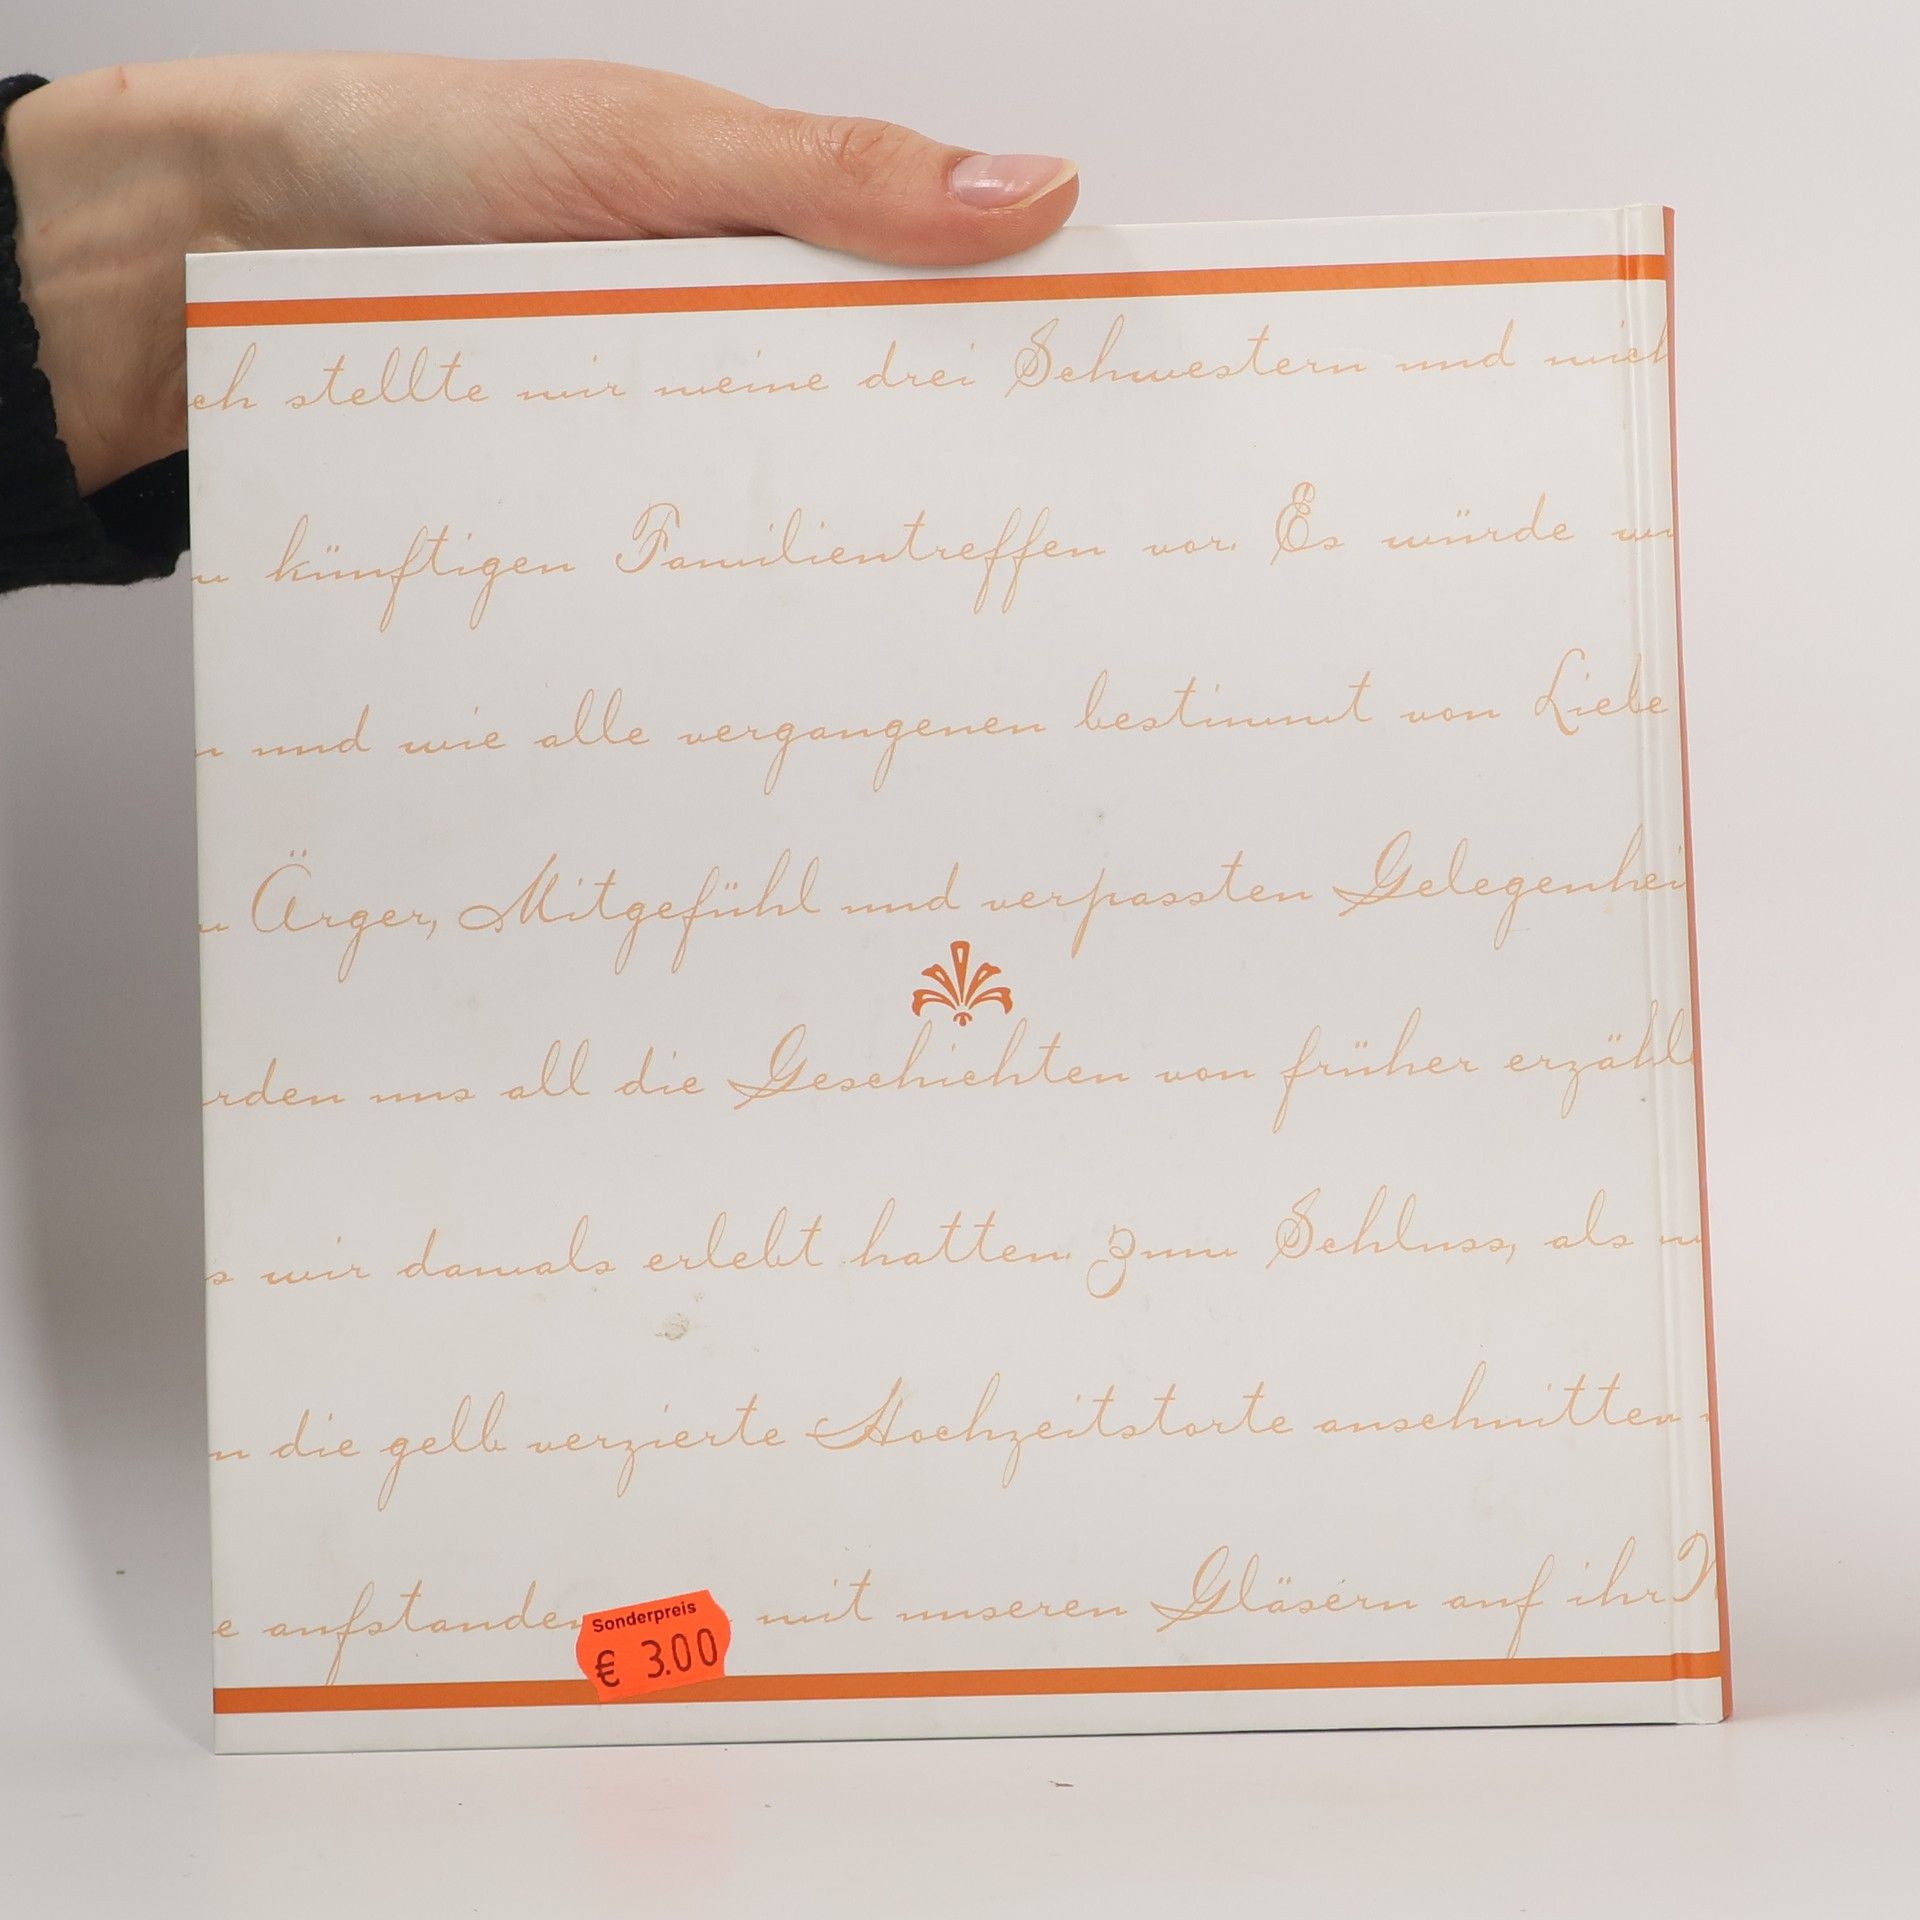 ch stellte mir meine drei Schwestern und mich
künftigen Familientreffen vor. Es würde
n und wie alle vergangenen bestimmt von Liebe
Ärger, Mitgefühl und verpassten Gelegenhei
rden uns all die Geschichten von früher erzähl
s wir damals erlebt hatten. Zum Schluss, als
n die gelb verzierte Hochzeitstorte anschnitten
e aufstanden mit unseren Gläsern auf ihr
Sonderpreis
€ 3.00